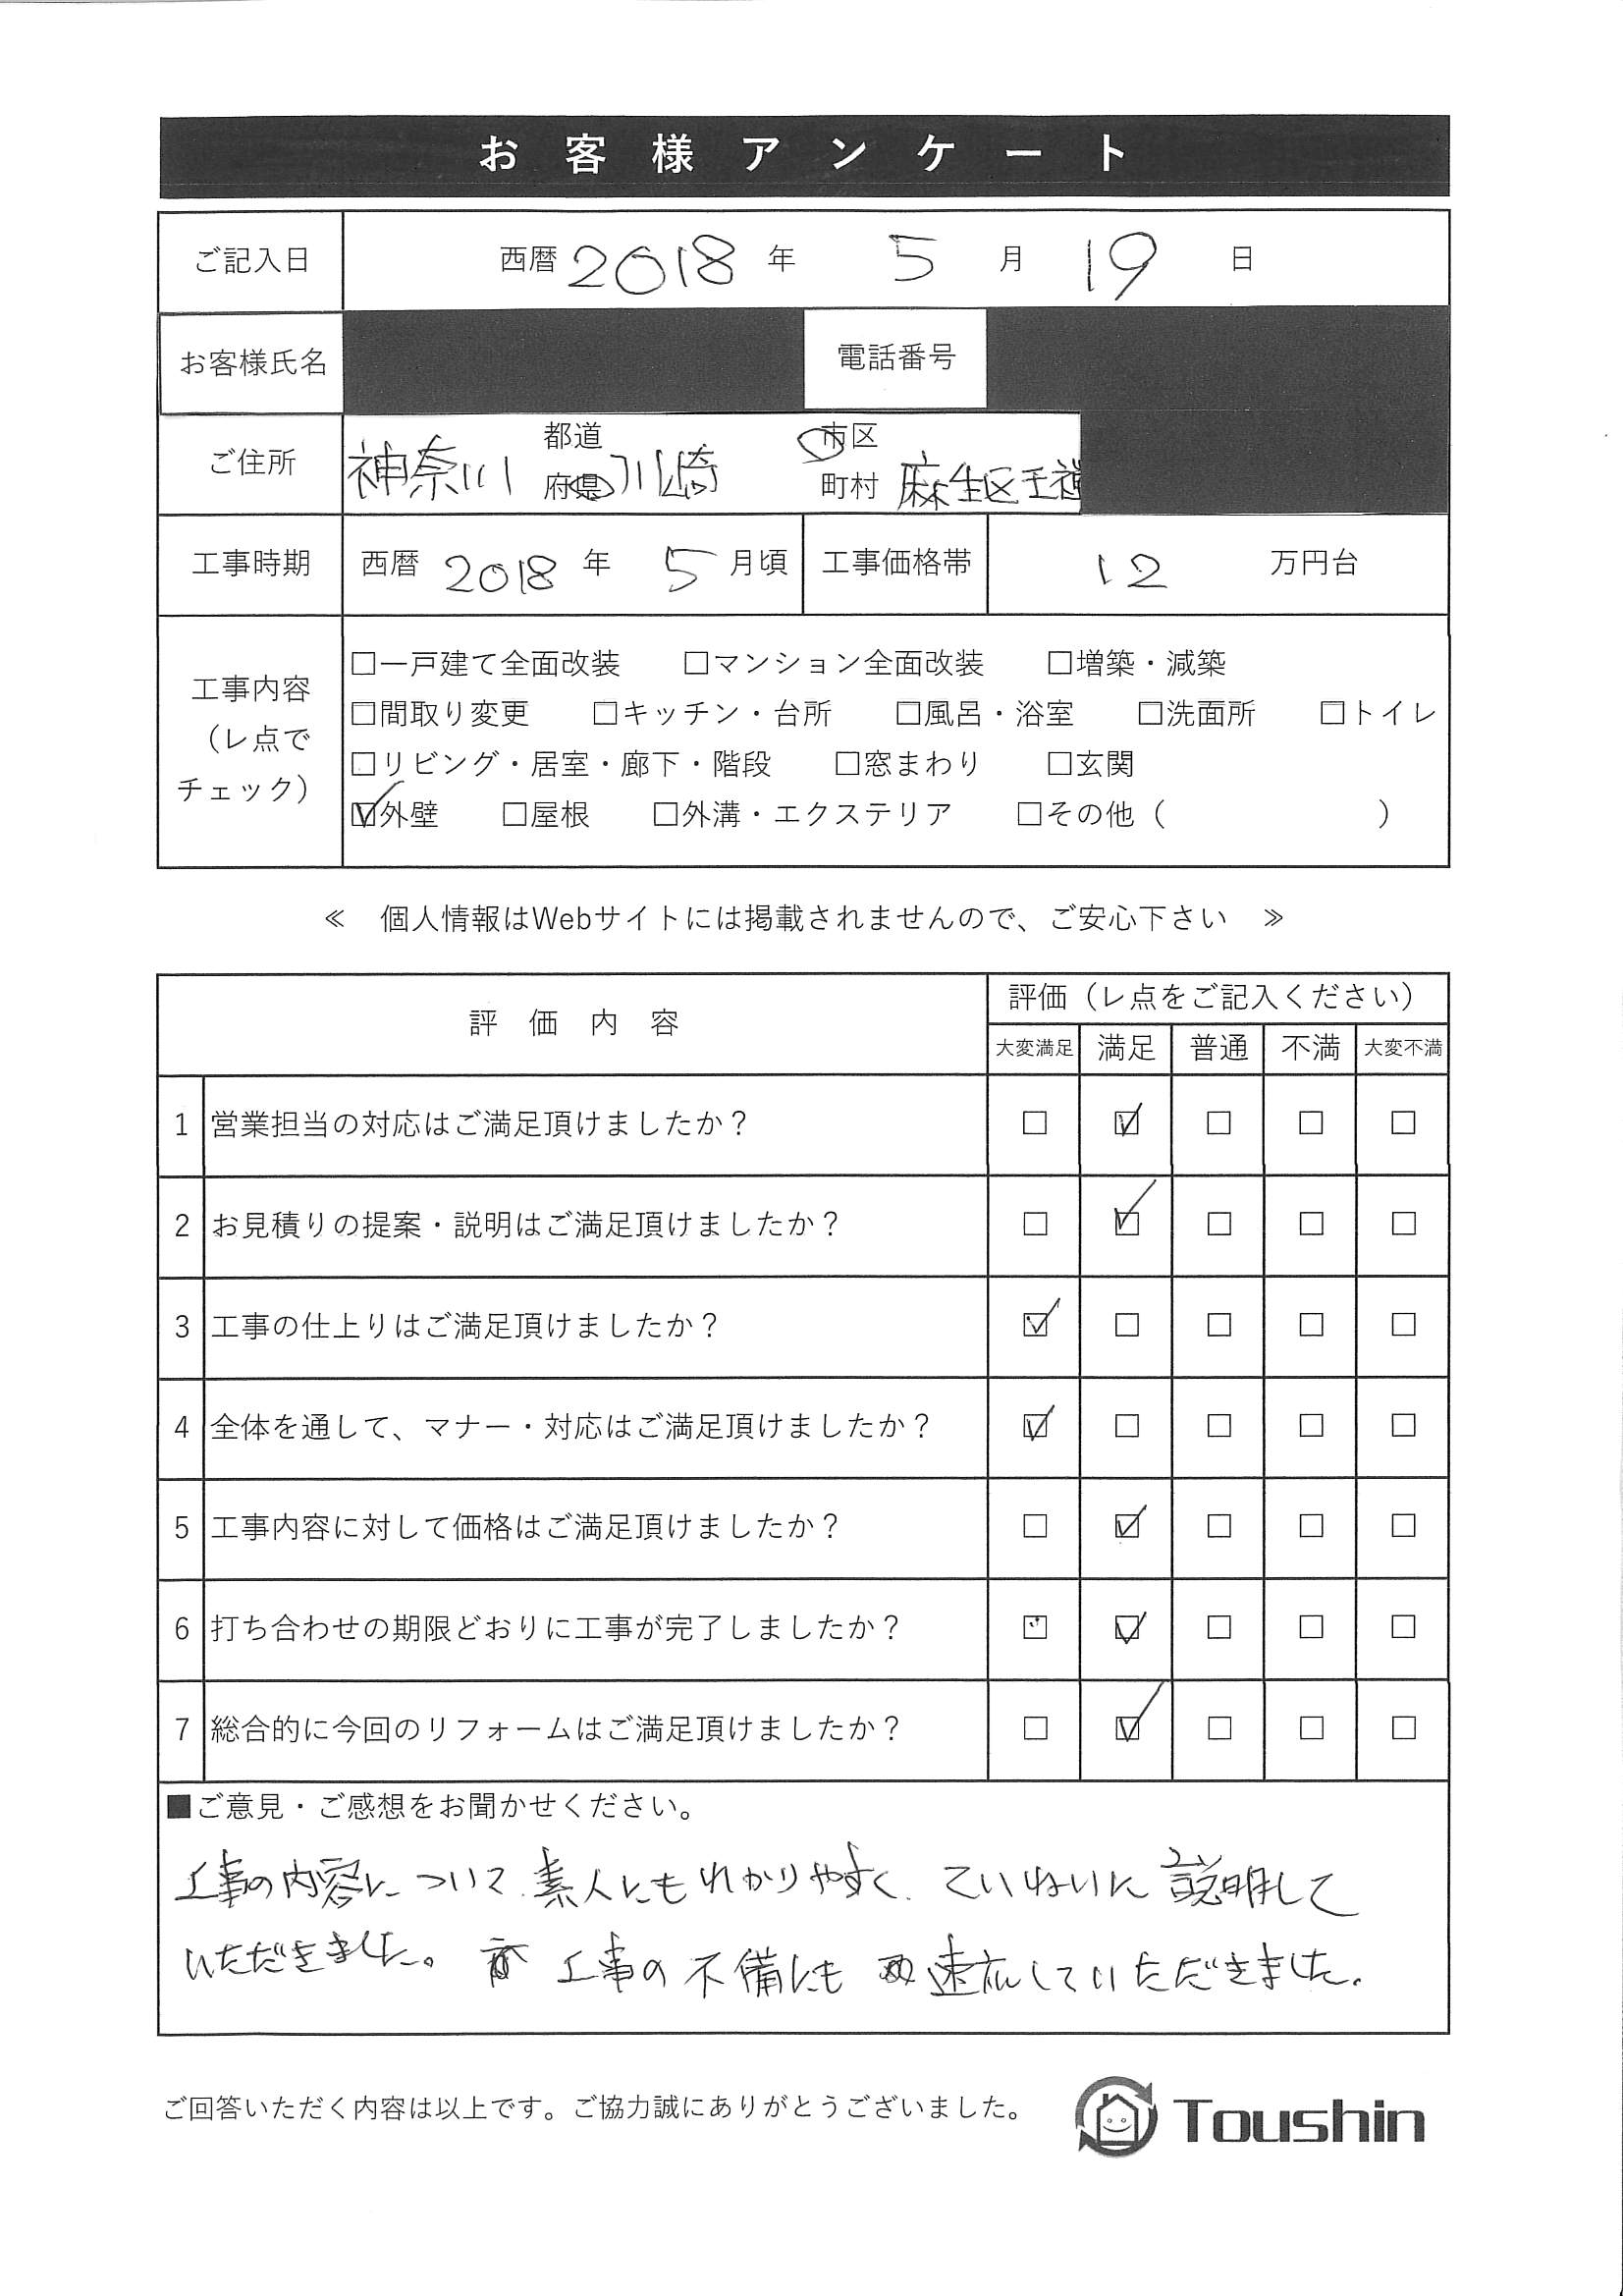 お客様アンケート
ご記入日 西暦 2018 年 5 月 19 日
お客様氏名 電話番号
ご住所 神奈川 都道府県 川崎 市区町村 麻生区王禅
工事時期 西暦 2018 年 5 月頃 工事価格帯 12 万円台
工事内容（レ点でチェック）
□一戸建て全面改装 □マンション全面改装 □増築・減築
□間取り変更 □キッチン・台所 □風呂・浴室 □洗面所 □トイレ
□リビング・居室・廊下・階段 □窓まわり □玄関
☑外壁 □屋根 □外溝・エクステリア □その他（ ）
≪ 個人情報はWebサイトには掲載されませんので、ご安心下さい ≫
評価内容 評価（レ点をご記入ください）
大変満足 満足 普通 不満 大変不満
1 営業担当の対応はご満足頂けましたか？ □ ☑ □ □ □
2 お見積りの提案・説明はご満足頂けましたか？ □ ☑ □ □ □
3 工事の仕上りはご満足頂けましたか？ ☑ □ □ □ □
4 全体を通して、マナー・対応はご満足頂けましたか？ ☑ □ □ □ □
5 工事内容に対して価格はご満足頂けましたか？ □ ☑ □ □ □
6 打ち合わせの期限どおりに工事が完了しましたか？ □ ☑ □ □ □
7 総合的に今回のリフォームはご満足頂けましたか？ □ ☑ □ □ □
■ご意見・ご感想をお聞かせください。
工事の内容について、素人にもわかりやすく、ていねいに説明して
いただきました。 工事の不備にも 速応していただきました。
ご回答いただく内容は以上です。ご協力誠にありがとうございました。
Toushin